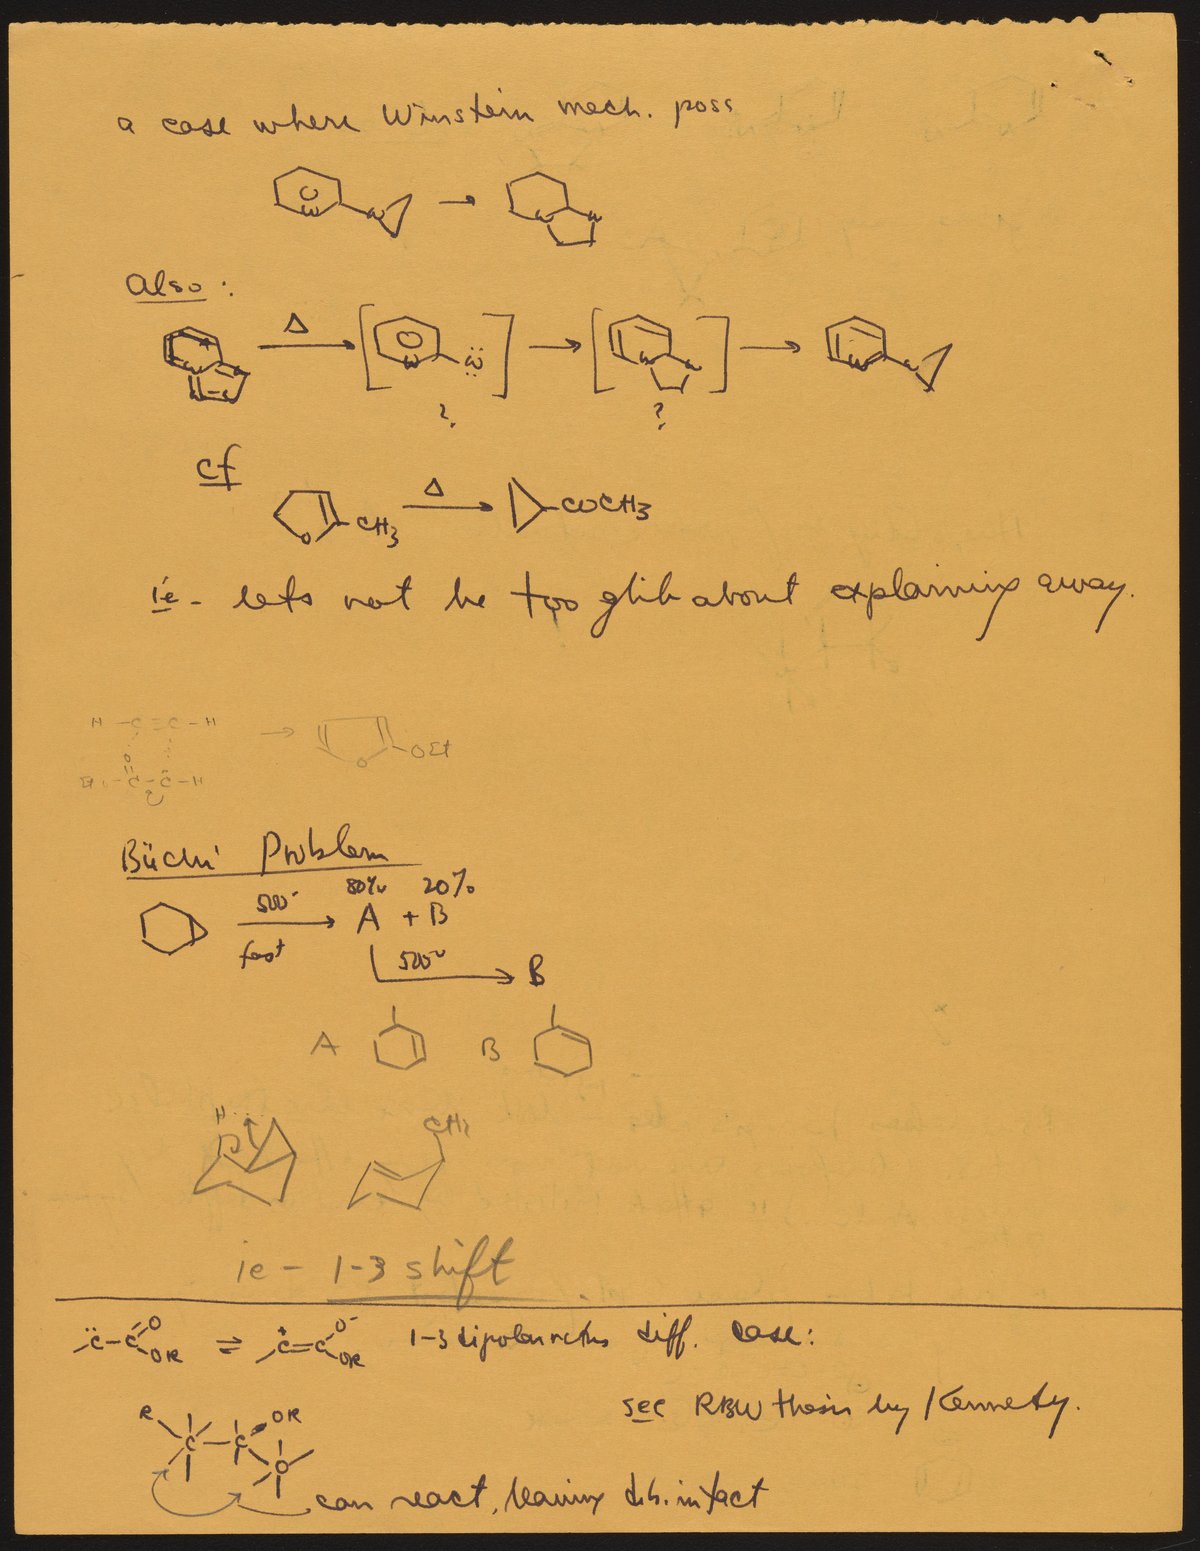 a case where Winstein mech. poss
N N → N N
Also:
N N N=N Δ → [ N N̈ ] → [ N N ] → N N
? ?
cf
O CH3 Δ → COCH3
ie - lets not be too glib about explaining away.
H-C=C-H → O OEt
O
C-C-H
Büchi Problem
500° fast → 80% A + 20% B
500° → B
A B
H CH2
ie - 1-3 shift
C-C O OR ⇌ C=C O- OR 1-3 dipolar rctns diff. case:
see RBW thesis by Kennedy.
R C C OR
O
can react, leaving d.b. intact